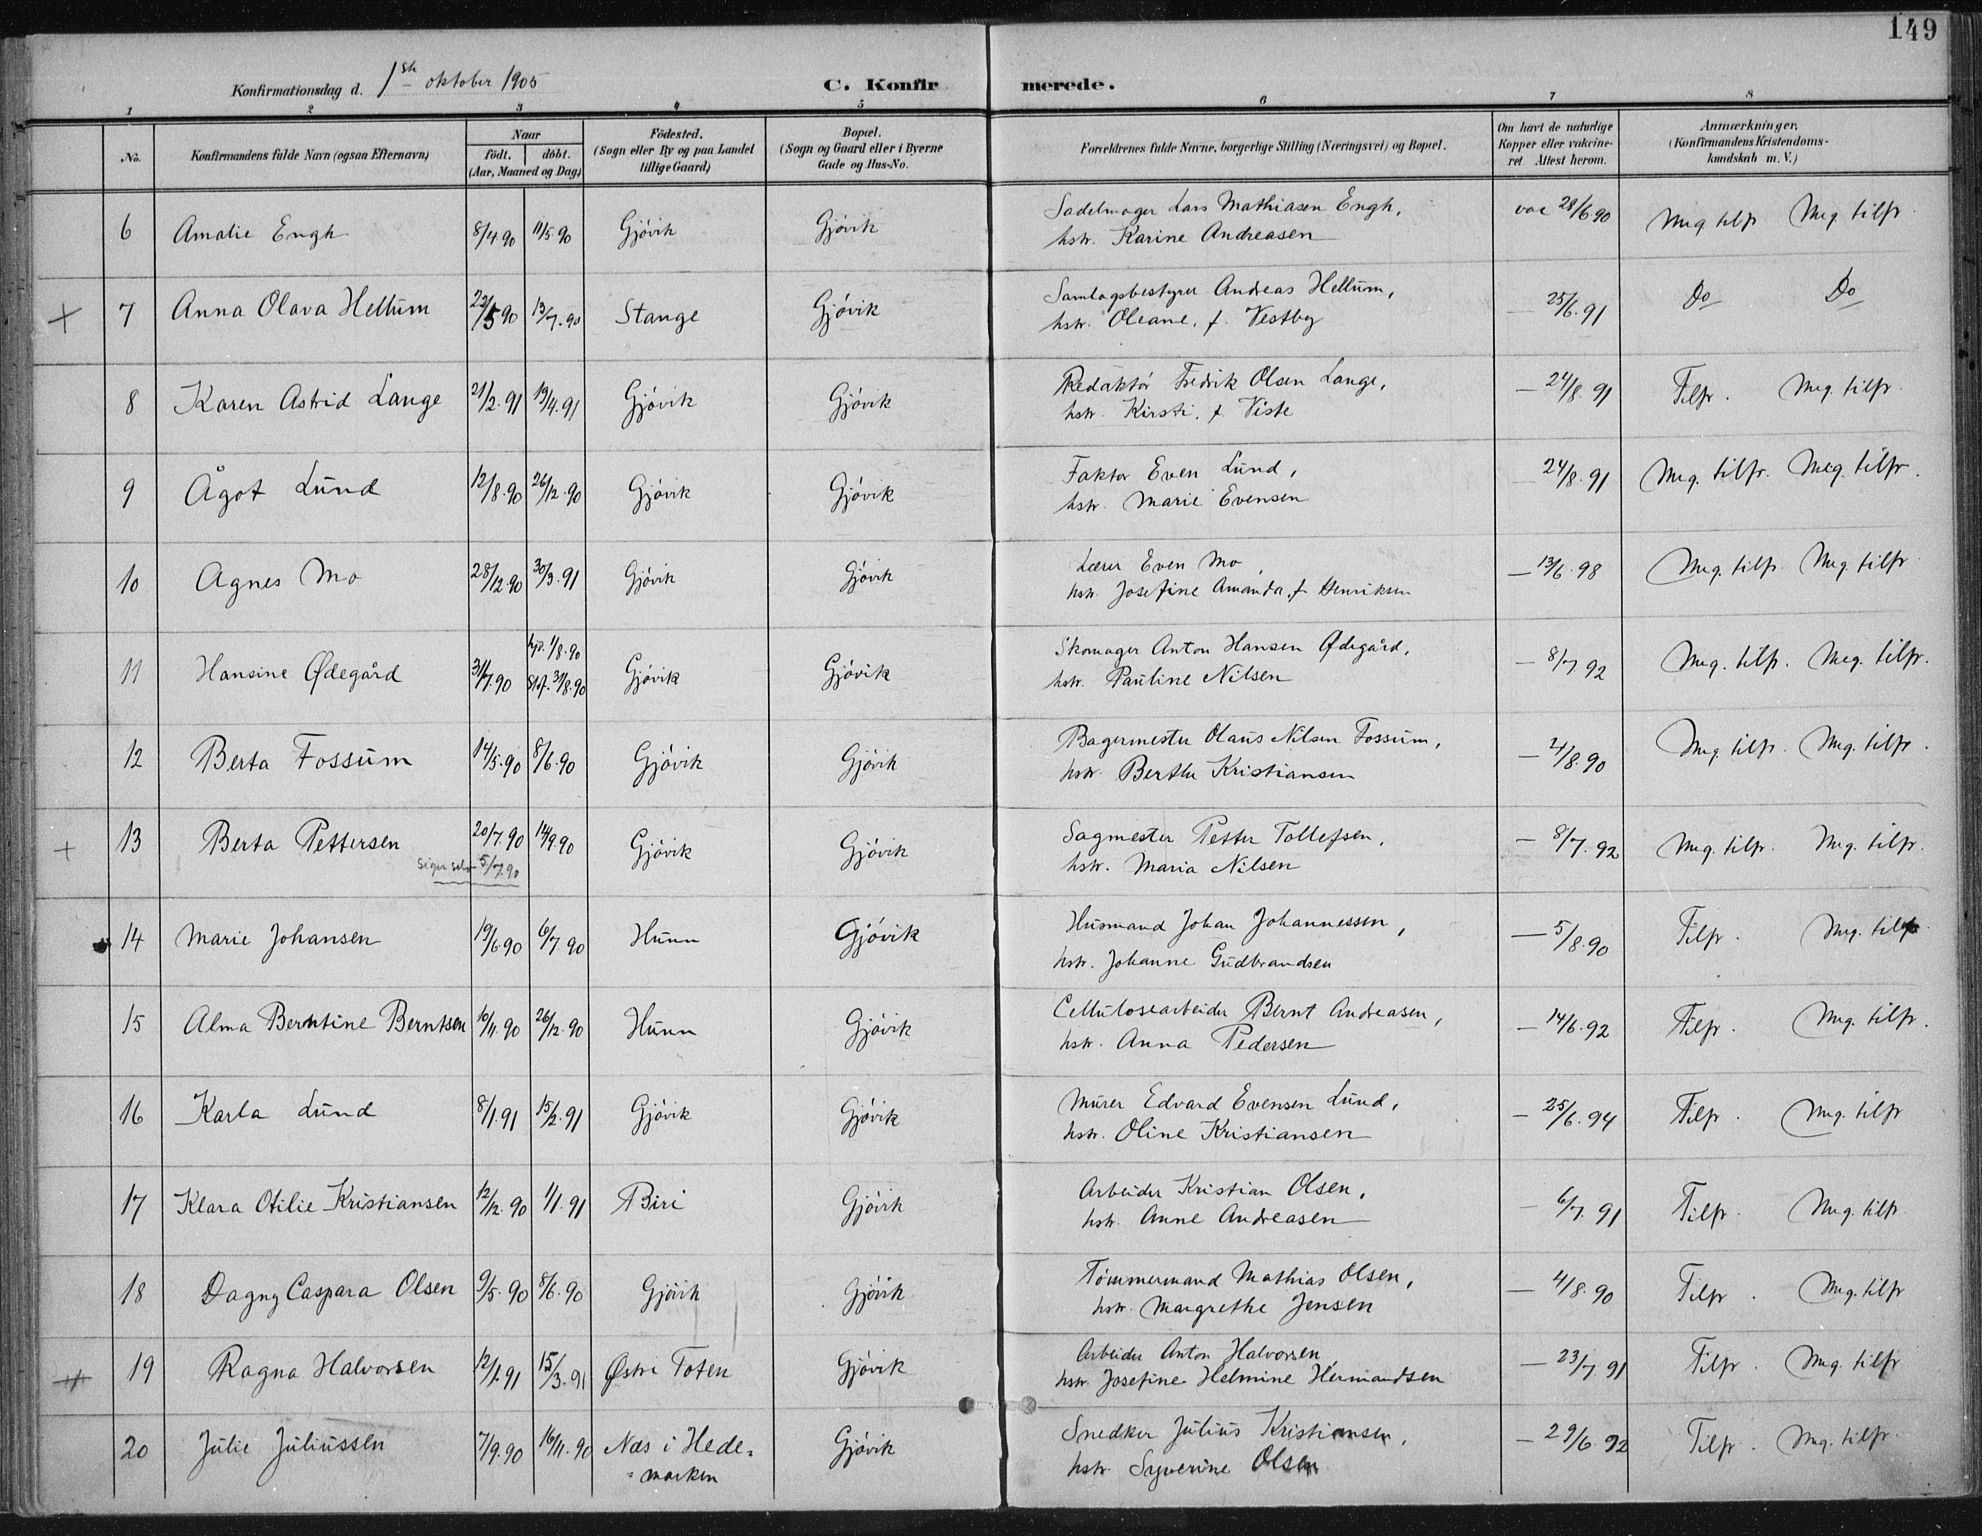 149
Konfirmationsdag d. 1ste oktober 1905 C. Konfirmerede.
1 2 3 4 5 6 7 8
No. Konfirmandens fulde Navn (ogsaa Efternavn) Naar født. døbt. (Aar, Maaned og Dag) Fødested. (Sogn eller By og paa Landet tillige Gaard) Bopæl. (Sogn og Gaard eller i Byerne Gade og Hus-No. Forældrenes fulde Navne, borgerlige Stilling (Næringsvei) og Bopæl. Om havt de naturlige Kopper eller vakcineret. Attest herom. Anmærkninger, (Konfirmandens Kristendomskundskab m. V.)
6 Amalie Engh 8/4.90 11/5.90 Gjøvik Gjøvik Sadelmager Lars Mathiasen Engh, vac 28/6 90 Meg tilfr Meg. tilfr
hstr. Karine Andreasen
+ 7 Anna Olava Hellum 22/5 90 13/7.90 Stange Gjøvik Samlagsbestyrer Andreas Hellum, — 25/6.91 Do Do
hstr. Oleane, f. Vestby
8 Karen Astrid Lange 21/2.91 19/4.91 Gjøvik Gjøvik Redaktør Fredrik Olsen Lange, — 24/8.91 Tilfr. Meg. tilfr.
hstr. Kirsti, f. Viste
9 Ågot Lund 12/8.90 26/12.90 Gjøvik Gjøvik Faktor Even Lund, — 24/8.91 Meg. tilfr. Meg. tilfr.
hstr. Marie Evensen
10 Agnes Mo 28/12.90 30/3.91 Gjøvik Gjøvik Lærer Even Mo, — 13/6.98 Meg. tilfr. Meg. tilfr
hstr. Josefine Amanda, f Henriksen
11 Hansine Ødegård 31/7.90 hjd. 1/8.90 Stf. 31/8.90 Gjøvik Gjøvik Skomager Anton Hansen Ødegård, — 8/7 92 Meg. tilfr. Meg. tilfr.
hstr. Pauline Nilsen
12 Berta Fossum 14/5.90 8/6.90 Gjøvik Gjøvik Bagermester Olaus Nilsen Fossum, — 4/8.90 Meg. tilfr. Meg. tilfr.
hstr. Berthe Kristiansen
+ 13 Berta Pettersen 20/7.90 14/9.90 Gjøvik Gjøvik Sagmester Petter Tollefsen, — 8/7.92 Meg. tilfr. Meg. tilfr.
siger selv 5/7.90 hstr. Maria Nilsen
14 Marie Johansen 19/6.90 6/7 90 Hunn Gjøvik Husmand Johan Johannessen, — 5/8.90 Tilfr. Meg. tilfr.
hstr. Johanne Gudbrandsen
15 Alma Berntine Berntsen 10/11.90 26/12.90 Hunn Gjøvik Cellulosearbeider Bernt Andreasen, — 14/6.92 Tilfr. Meg. tilfr.
hstr. Anna Pedersen
16 Karla Lund 8/1.91 15/2.91 Gjøvik Gjøvik Murer Edvard Evensen Lund, — 25/6.94 Tilfr. Meg. tilfr
hstr. Oline Kristiansen
17 Klara Otilie Kristiansen 12/12.90 1/1.91 Biri Gjøvik Arbeider Kristian Olsen, — 6/7.91 Tilfr. Meg. tilfr.
hstr. Anne Andreasen
18 Dagny Caspara Olsen 9/5.90 8/6.90 Gjøvik Gjøvik Tømmermand Mathias Olsen, — 4/8.90 Tilfr. Meg. tilfr
hstr. Margrethe Jensen
+ 19 Ragna Halvorsen 12/1.91 15/3.91 Østre Toten Gjøvik Arbeider Anton Halvorsen — 23/7 91 Tilfr. Meg. tilfr
hstr. Josefine Helmine Hermandsen
20 Julie Juliussen 7/9.90 16/11.90 Næs i Hede= Gjøvik Snedker Julius Kristiansen, — 29/6.92 Tilfr. Meg. tilfr.
=marken hstr. Syverine Olsen